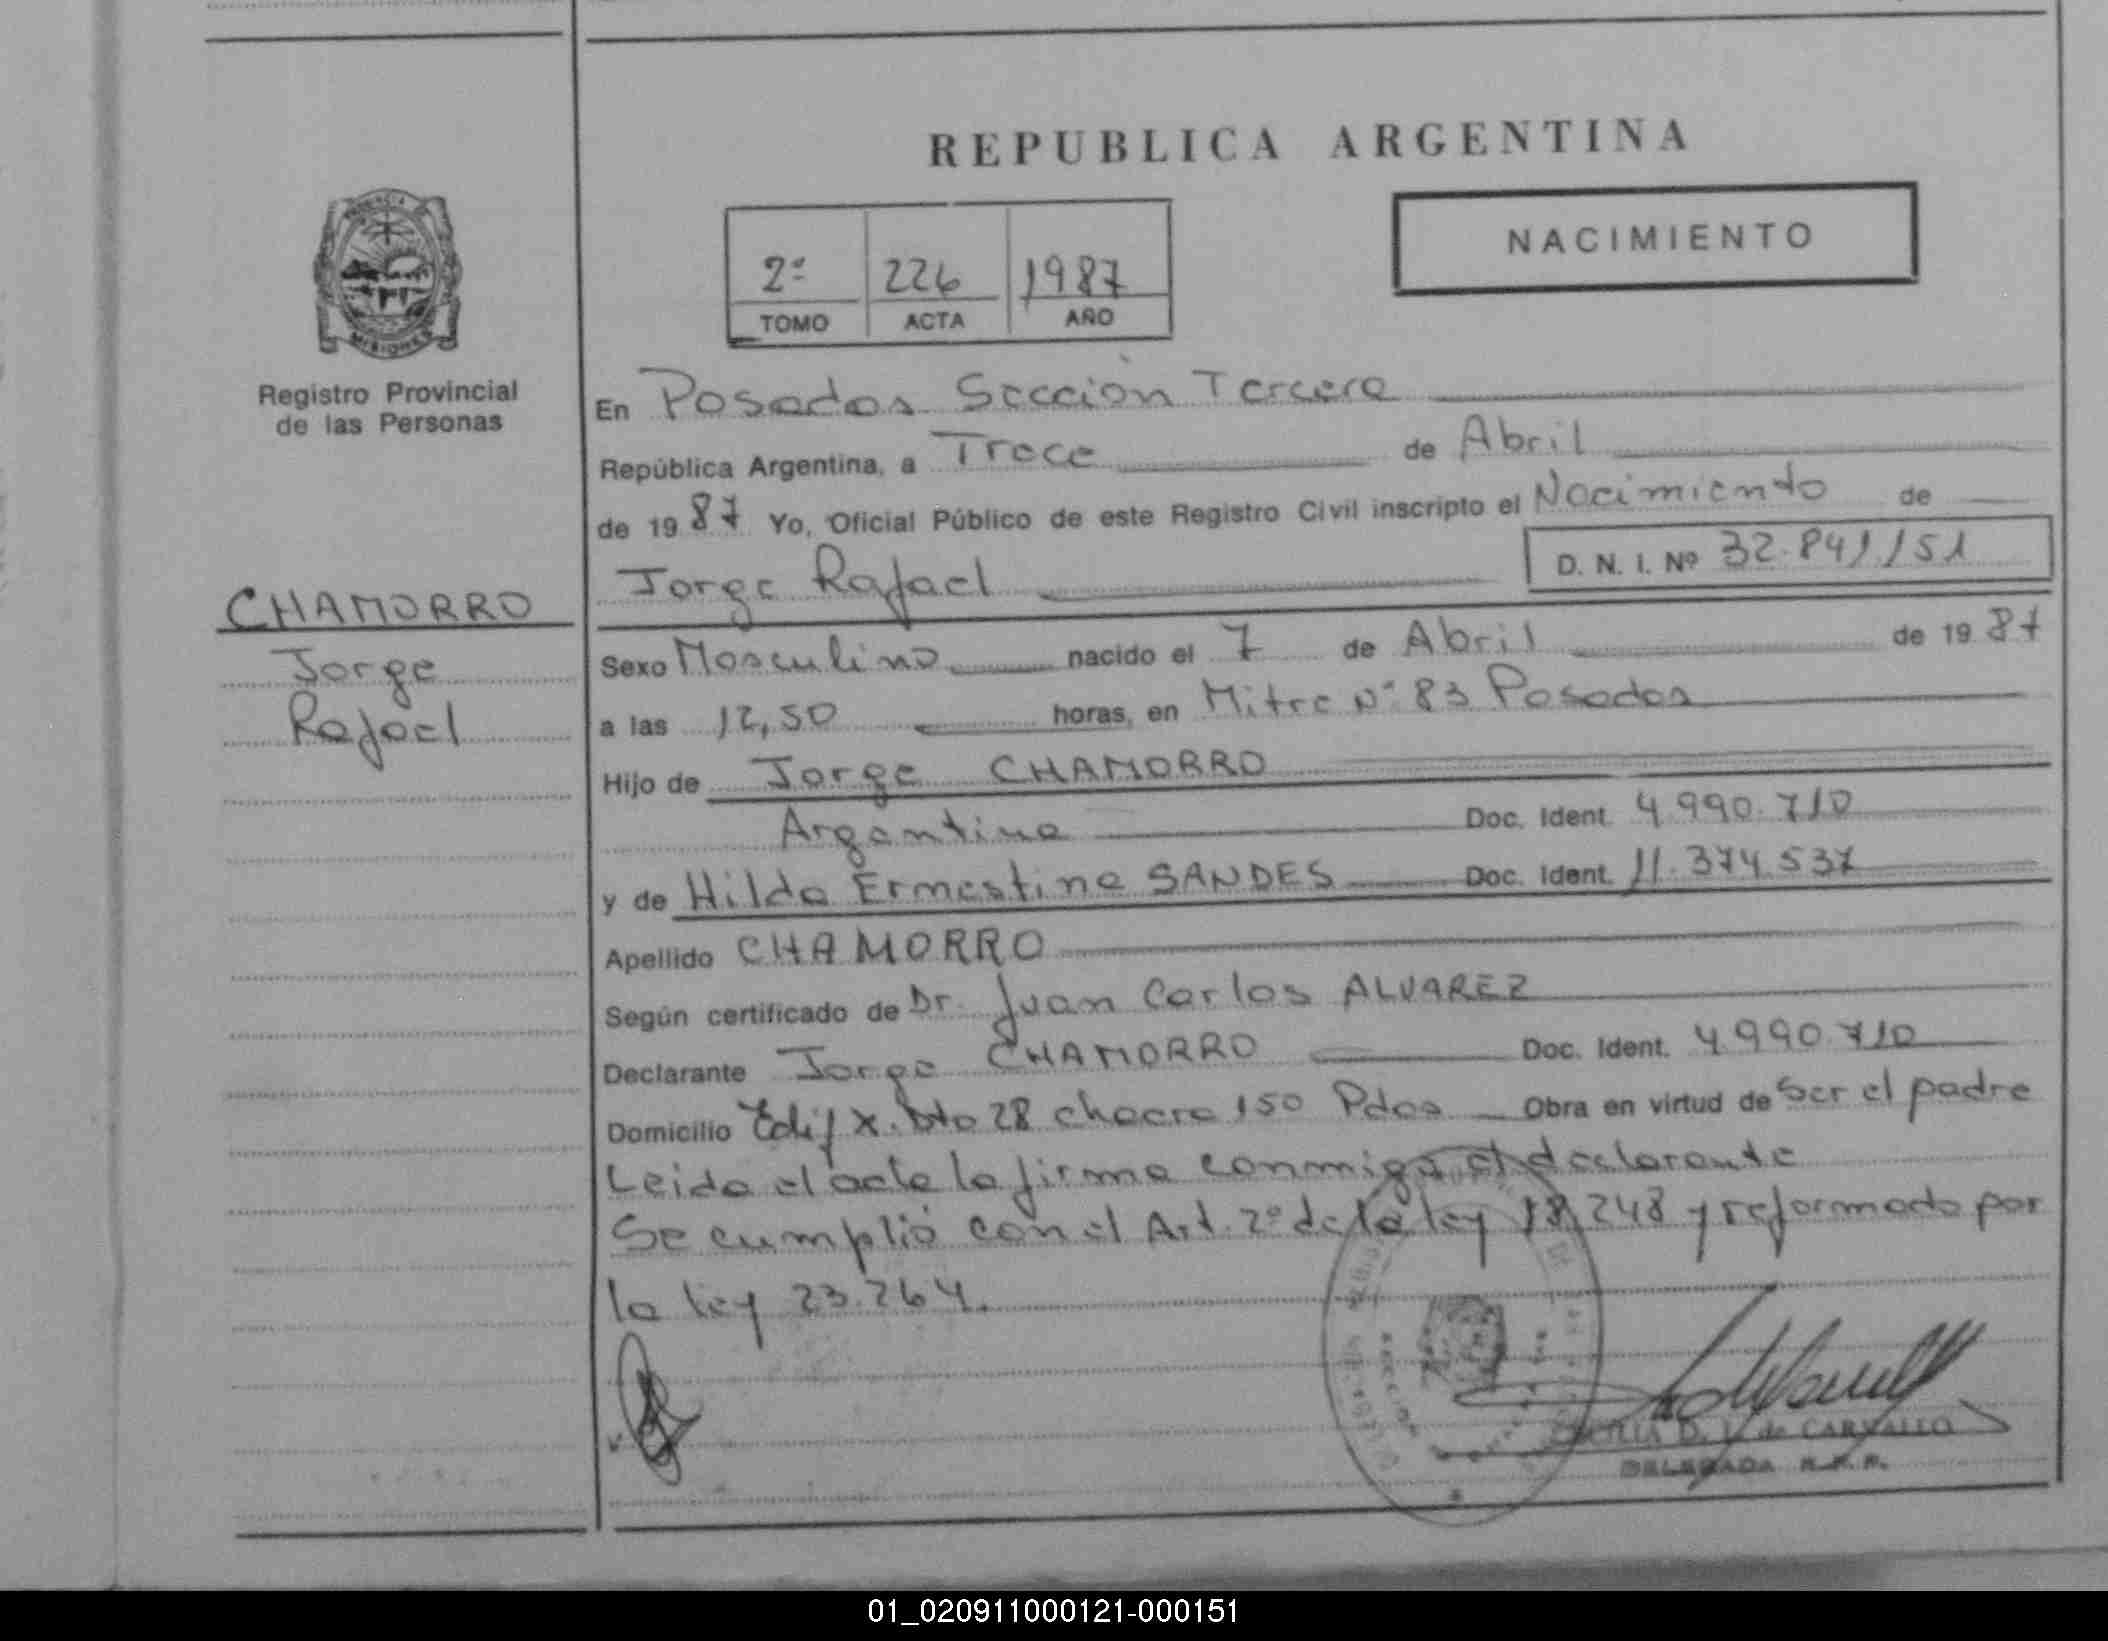 REPUBLICA ARGENTINA
NACIMIENTO
2º 226 1987
TOMO ACTA AÑO
PROVINCIA
MISIONES
Registro Provincial
de las Personas
CHAMORRO
Jorge
Rafael
En Posadas Sección Tercera
República Argentina, a Trece de Abril
de 19 87 Yo, Oficial Público de este Registro Civil inscripto el Nacimiento de
Jorge Rafael D. N. I. Nº 32.841.151
Sexo Masculino nacido el 7 de Abril de 19 87
a las 12,50 horas, en Mitre Nº 83 Posadas
Hijo de Jorge CHAMORRO
Argentino Doc. Ident. 4.990.710
y de Hilda Ermestina SANDES Doc. Ident. 11.374.537
Apellido CHAMORRO
Según certificado de Dr. Juan Carlos ALVAREZ
Declarante Jorge CHAMORRO Doc. Ident. 4.990.710
Domicilio Edif X. Dto 28 chacra 150 Pdas Obra en virtud de Ser el padre
Leida el acta la firma conmigo el declarante
Se cumplió con el Art. 2º de la ley 18.248 y reformado por
la ley 23.264.
de CARVALLO
DELEGADA R.P.P.
01_020911000121-000151